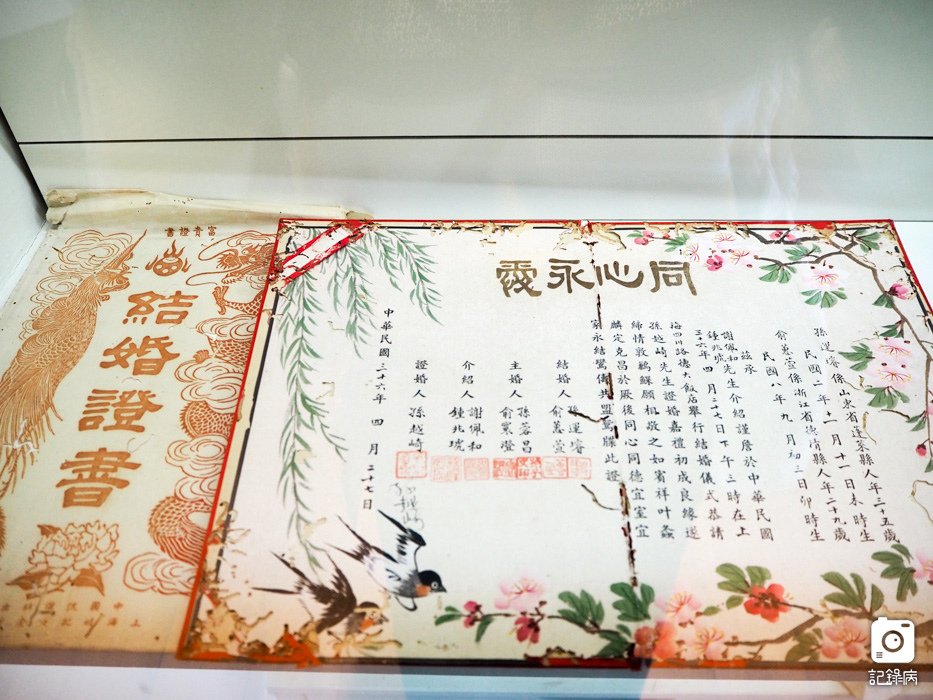 同心永愛
孫運璿係山東省蓬萊縣人年三十五歲
民國二年十一月十一日未時生
俞蕙萱係浙江省德清縣人年二十九歲
民國八年九月初三日卯時生
茲承
謝佩和
鍾兆琥先生介紹謹詹於中華民國
三十六年四月二十七日下午三時在上
海四川路德大飯店舉行結婚儀式恭請
孫越崎先生證婚嘉禮初成良緣遂
締情敦鶼鰈願相敬之如賓祥叶螽
麟定克昌於厥後同心同德宜室宜
家永結鸞儔共盟鴛牒此證
結婚人 孫運璿
俞蕙萱
主婚人 孫蓉昌
俞 澄
介紹人 謝佩和
鍾兆琥
證婚人 孫越崎
中華民國三十六年四月二十七日
富貴證書
結婚證書
記錄病